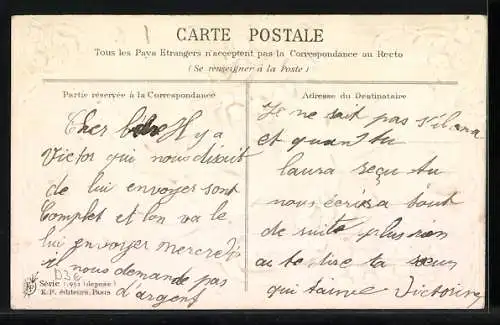 CARTE POSTALE
Tous les Pays Etrangers n'acceptent pas la Correspondance au Recto
(Se renseigner à la Poste)
Partie réservée à la Correspondance
Cher Il y a
Victor qui nous disait
de lui envoyer sont
Complet et l'on va le
lui envoyer mercredi
il nous demande pas
d'argent
D3e
Série 1.952 (déposée)
E.P. éditeurs, Paris
Adresse du Destinataire
Je ne sait pas s'il
et quant tu
laura reçu tu
nous écrira tout
de suite plus rien
a te dire ta sœur
qui t'aime Victorine